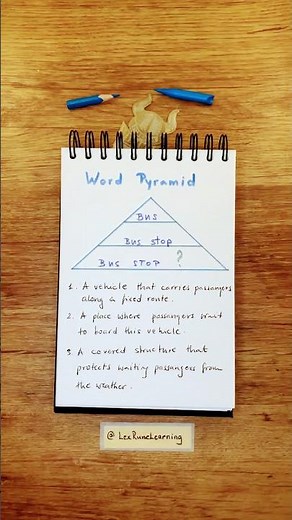 Word Pyramid
BUS
BUS stop
BUS STOP ?
1. A vehicle that carries passangers
along a fixed route.
2. A place where passengers wait
to board this vehicle.
3. A covered structure that
protects waiting passengers from
the weather.
@ LexRuneLearning